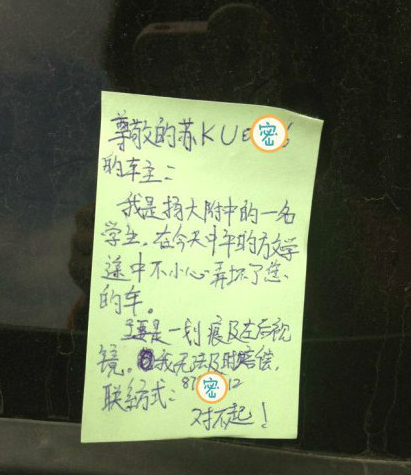 尊敬的苏KUE密6
的车主：
我是扬大附中的一名
学生，在今天中午的放学
途中不小心弄坏了您
的车。
主要是一划痕及左后视
镜。我无法及时赔偿，
联系方式：87密12
对不起！